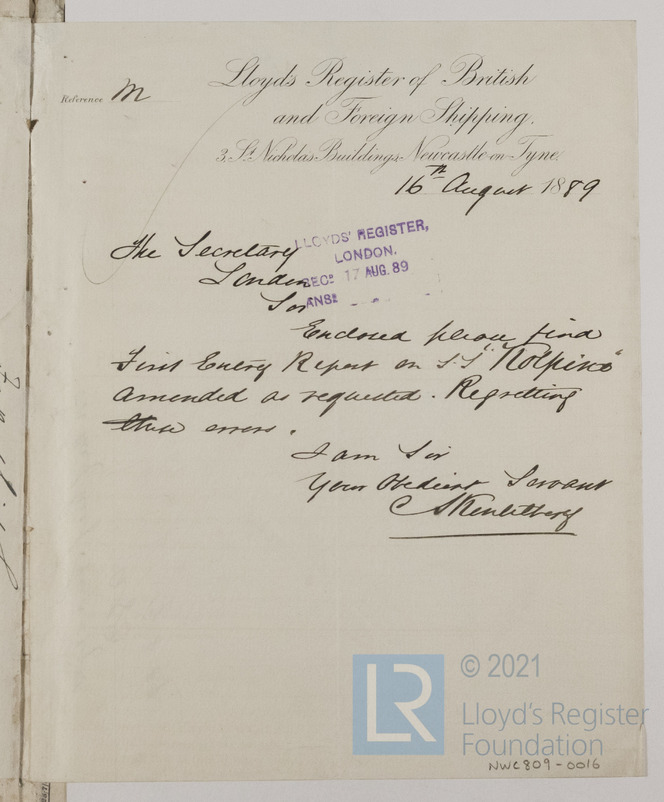 Reference M
Lloyd's Register of British
and Foreign Shipping.
3, St. Nicholas Buildings, Newcastle-on-Tyne.
16th August 1889
The Secretary
London
LLOYDS' REGISTER,
LONDON.
REC'D 17 AUG. 89
ANS'D
Sir
Enclosed please find
First Entry Report on S.S.
amended as requested. Regretting
these errors.
I am Sir
Your Obedient Servant
LR
© 2021
Lloyd's Register
Foundation
NWC809-0016